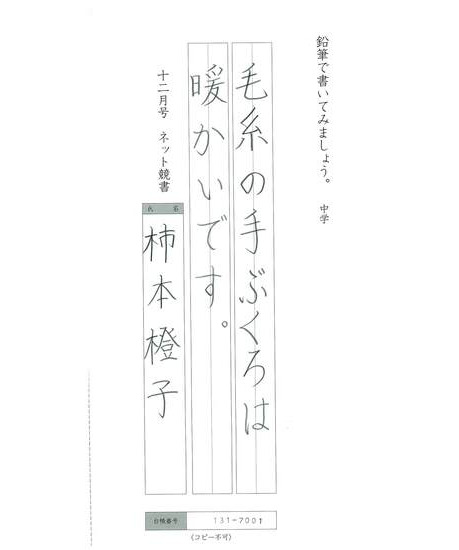 鉛筆で書いてみましょう。 中学
毛糸の手ぶくろは
暖かいです。
十二月号 ネット競書
氏名
柿本橙子
台帳番号 131-7001
(コピー不可)